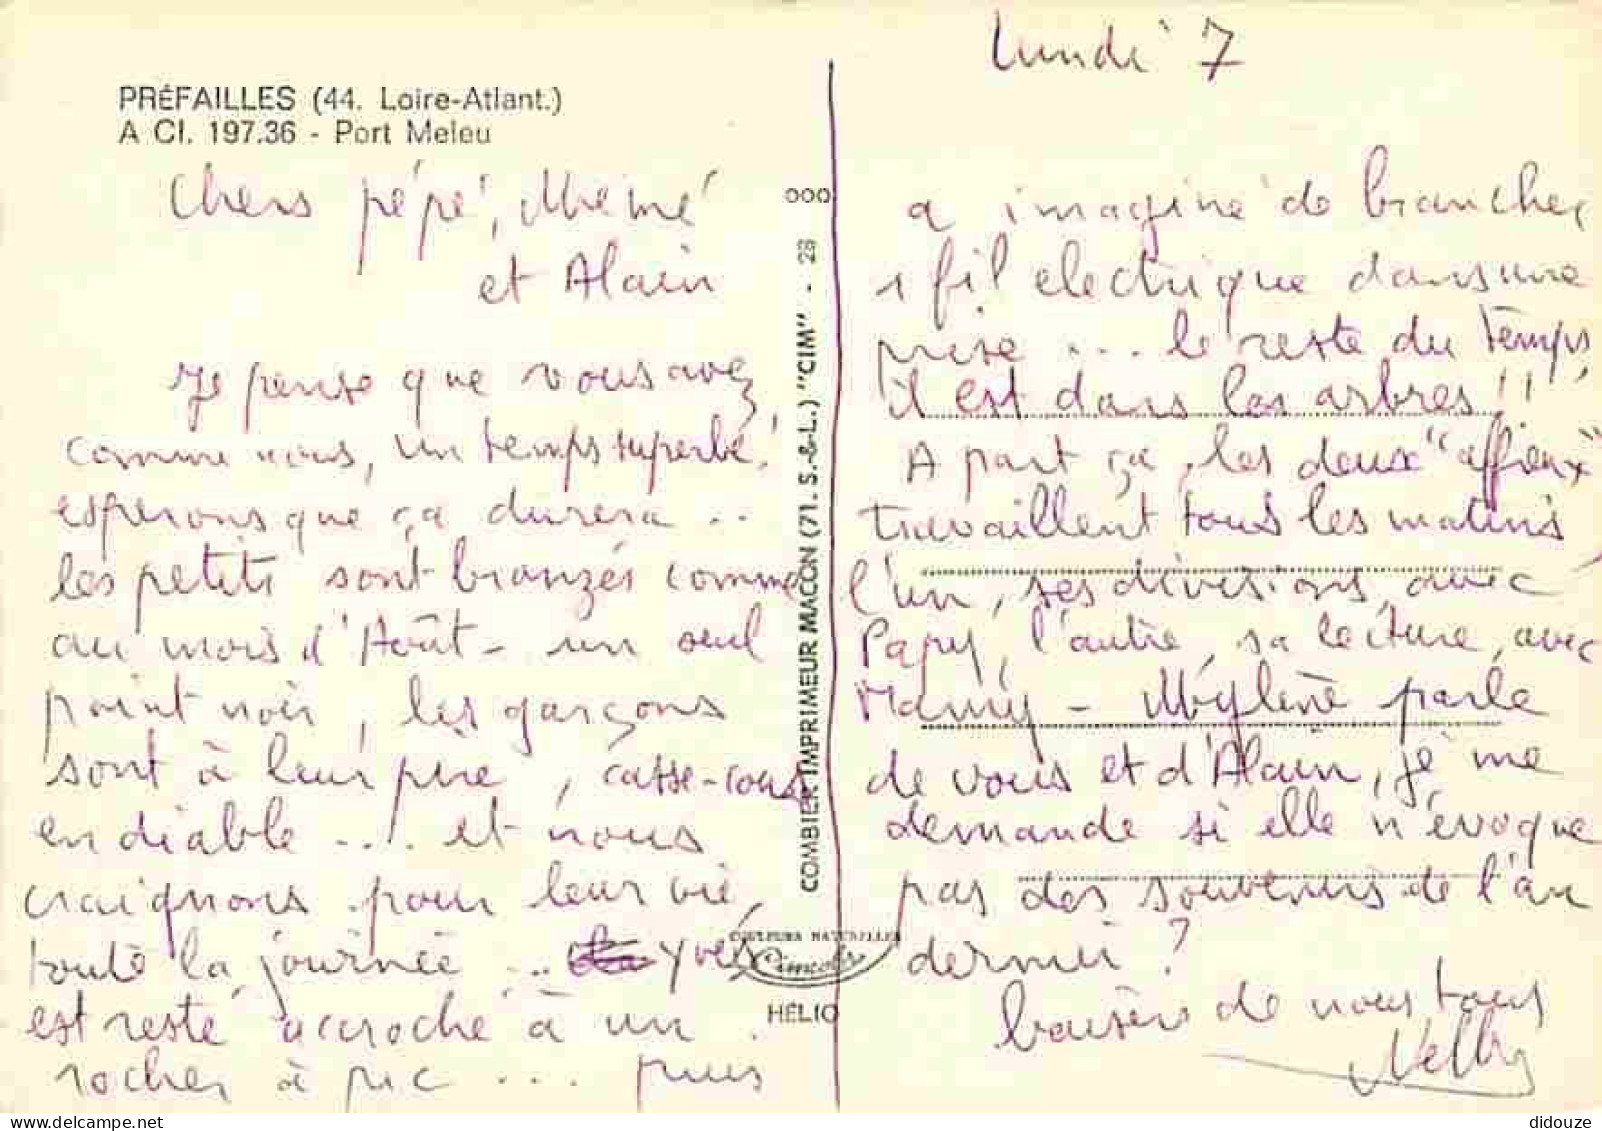 PRÉFAILLES (44. Loire-Atlant.)
A Cl. 197.36 - Port Meleu
Chers pépé, Mémé
et Alain
Je pense que vous avez
comme nous, un temps superbe!
esperons que ça durera ..
les petits sont bronzés comme
au mois d'Août - un seul
point noir, les garçons
sont à leur pire, casse-cous
en diable ... et nous
craignons pour leur vie
toute la journée ... Yves
est resté accroché à un
rocher à pic ... puis
000
COMBIER IMPRIMEUR MACON (71. S.-&-L.) "CIM" - 28
COULEURS NATURELLES
Cimcolor
HÉLIO
Lundi 7
a imaginé de brancher
1 fil electrique dans une
prise ... le reste du temps,
il est dans les arbres!!!
A part ça, les deux "affreux"
travaillent tous les matins,
l'un, ses divisions, avec
Papy, l'autre, sa lecture, avec
Mamy - Mylène parle
de vous et d'Alain, je me
demande si elle n'évoque
pas des souvenirs de l'an
dernier ?
baisers de nous tous
Nelly
didouze